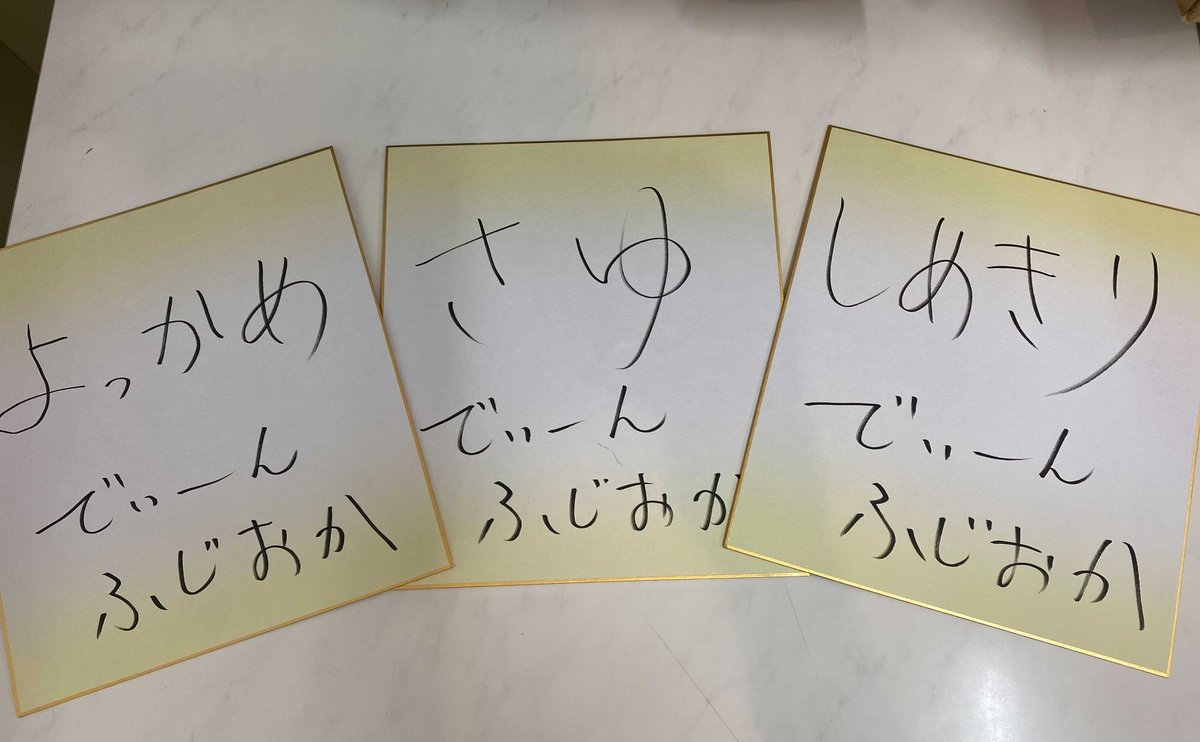 よっかめ
でぃーん
ふじおか
さゆ
でぃーん
ふじおか
しめきり
でぃーん
ふじおか